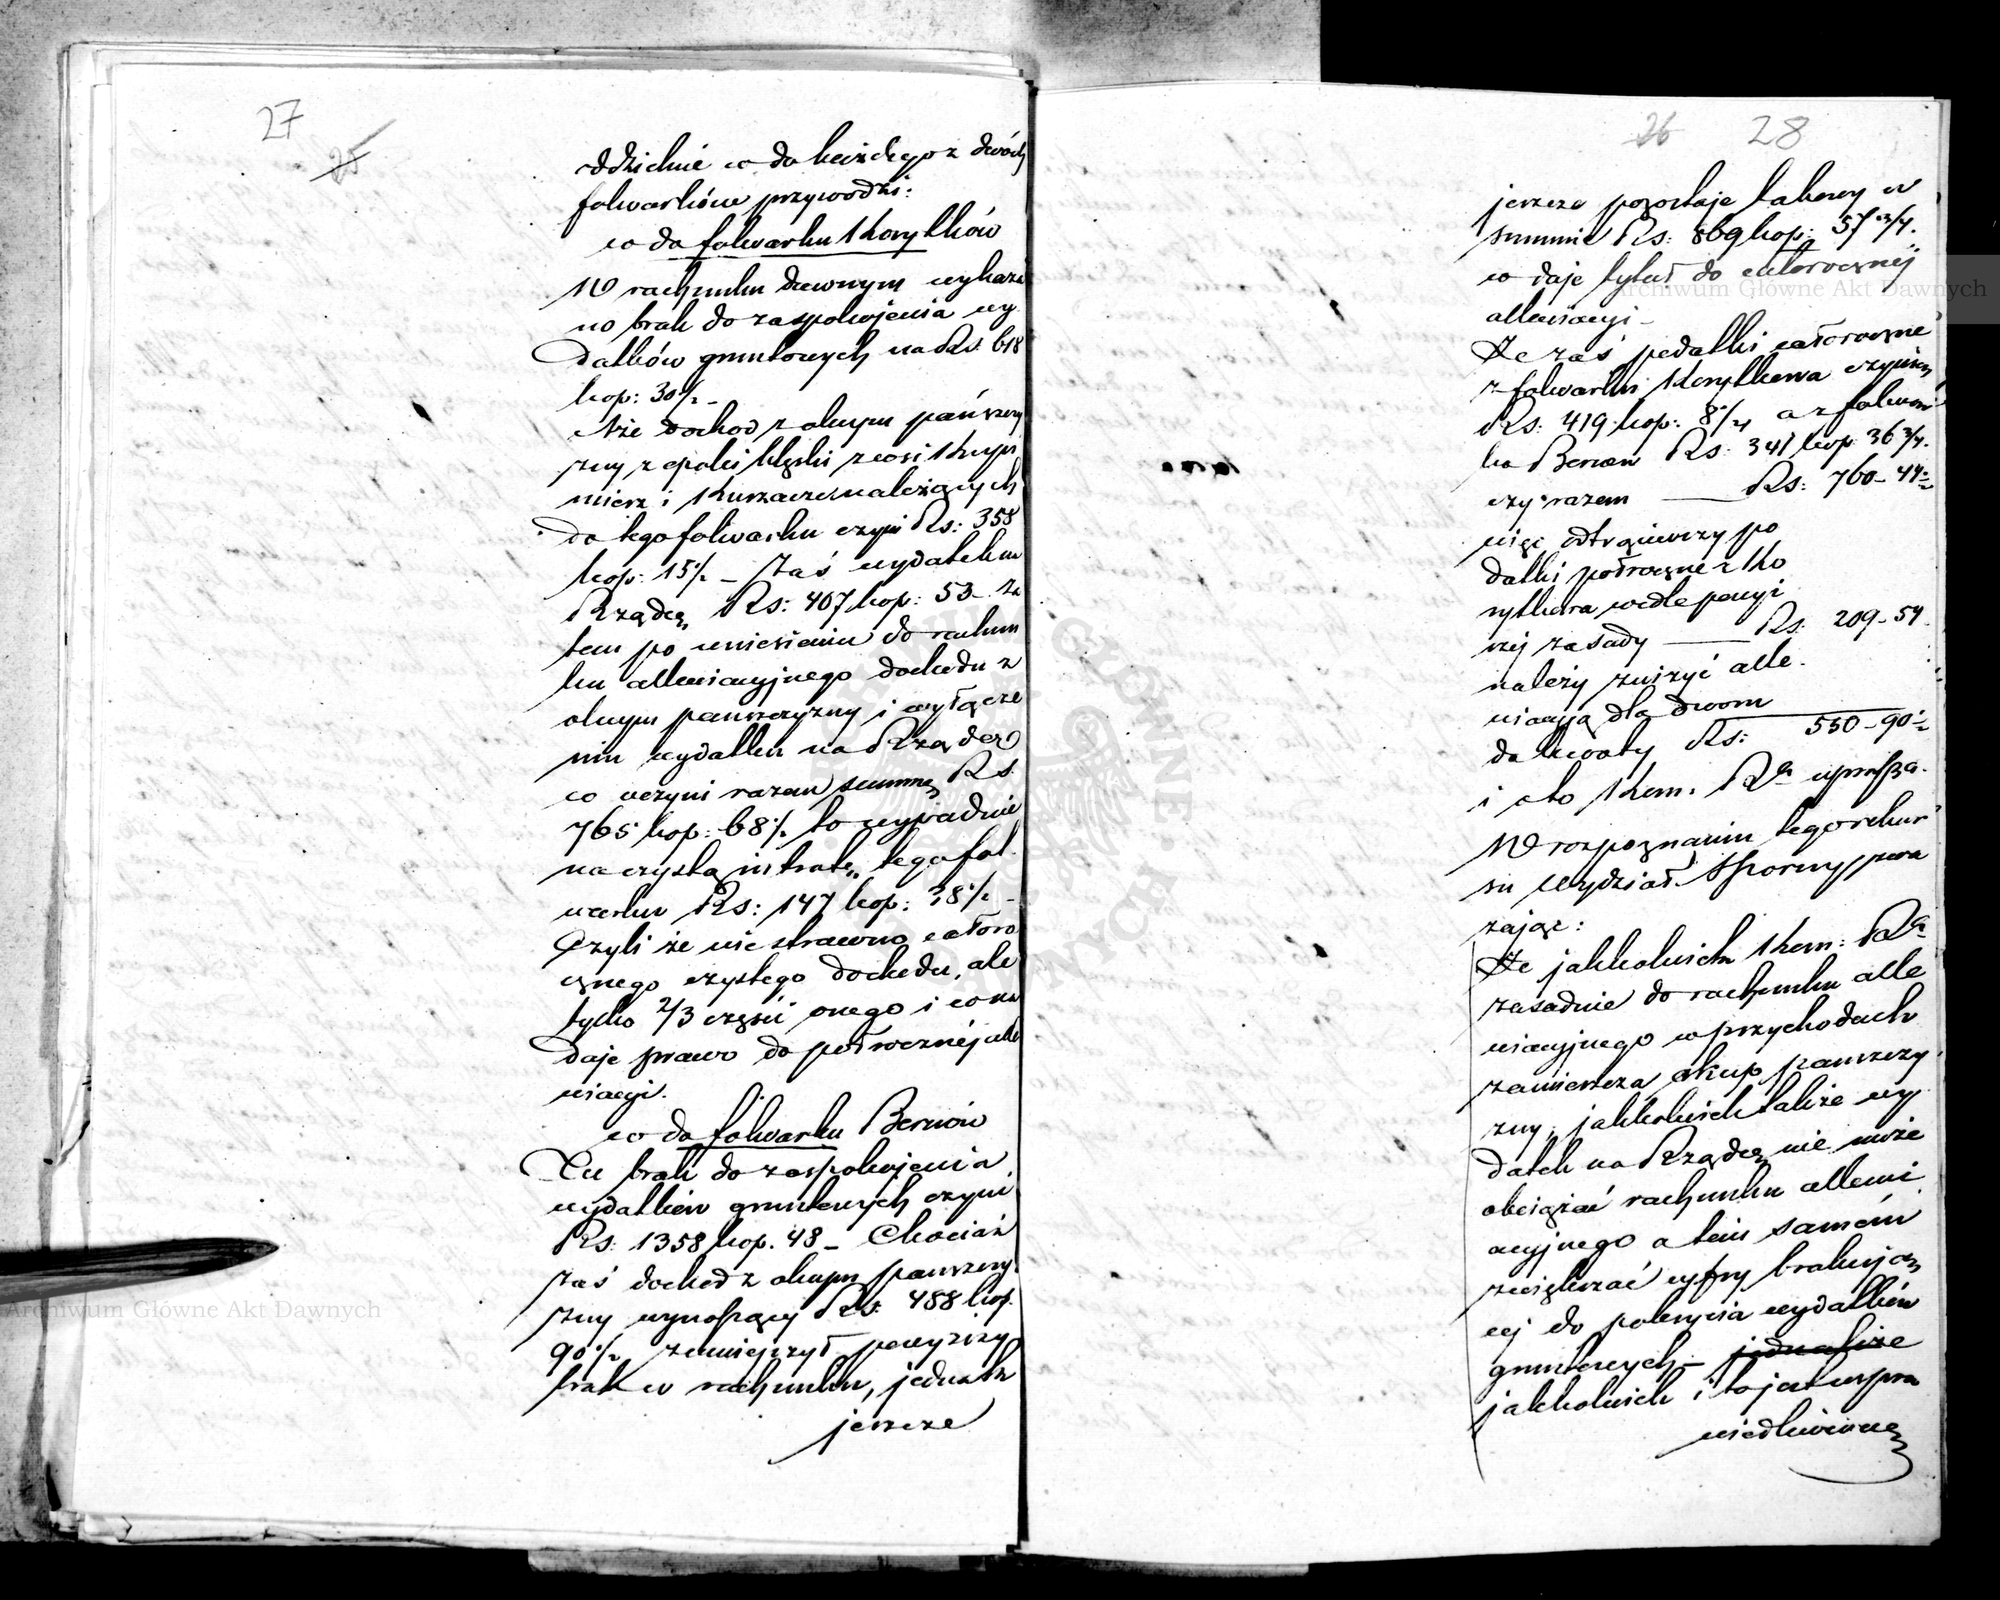 27
25
oddzielnie co do każdego z dwóch
folwarków przywodzi:
co do folwarku Korytków
W rachunku dawnym wykaza
no brak do zaspokojenia wy
datków gruntowych na Rs: 618
kop: 30 1/2 –
że dochod z okupu pańszczy
zny z epoki klęski z wsi
mierz i należących
do tego folwarku czyni Rs: 358
kop: 15 1/2 – Zaś wydatek na
Rządcę Rs: 407 kop: 53 – za
tem po wniesieniu do rachun
ku allewiacyjnego dochodu z
okupu pańszczyzny i wyłącze
niu wydatku na Rządcę
co uczyni razem summę Rs.
765 kop: 68 1/2 to wypadnie
na czystą intratę tego fol
warku Rs: 147 kop: 38 1/2 –
Czyli że nie strawno całoro
cznego czystego dochodu, ale
tylko 2/3 części onego i co na
daje prawo do półrocznéj alle
wiacyi.
co do folwarku Berwów
Tu brak do zaspokojenia
wydatków gruntowych czyni
Rs: 1358 kop. 48 – Chociaż
zaś dochod z okupu pańszczy
zny wynoszący Rs: 488 kop.
90 1/2 zmniejszył powyższy
brak w rachunku, jednak
jeszcze
26 28
jeszcze pozostaje takowy w
summie Rs: 869 kop: 57 3/4.
co daje tytuł do całorocznéj
allewiacyi –
Że zaś podatki całoroczne
z folwarku Korytkowa czynią
Rs: 419 kop: 8 1/4 a z folwar
ku Berwów Rs: 341 kop 36 3/4.
czy razem Rs: 760 – 44
więc odtrąciwszy po
datki półroczne z Ko
rytkowa wedle powyż
széj zasady Rs. 209 – 54
należy zniżyć alle
wiacyą dla dwoom
do kwoty Rs: 550 – 90 1/2
i o to Kom. Ra uprasza.
W rozpoznaniu tego rekur
su Wydział Sporny uwa
żając:
Że jakkolwiek Kom: Ra
zasadnie do rachunku alle
wiacyjnego w przychodach
zamieszcza okup pańszczy
zny, jakkolwiek także wy
datek na Rządcę nie może
obciążać rachunku allewi
acyjnego a tem samém
zwiększać cyfry brakują
céj do pokrycia wydatków
gruntowych – jednakże
jakkolwiek i to jest uspra
wiedliwione
Archiwum Główne Akt Dawnych
Archiwum Główne Akt Dawnych